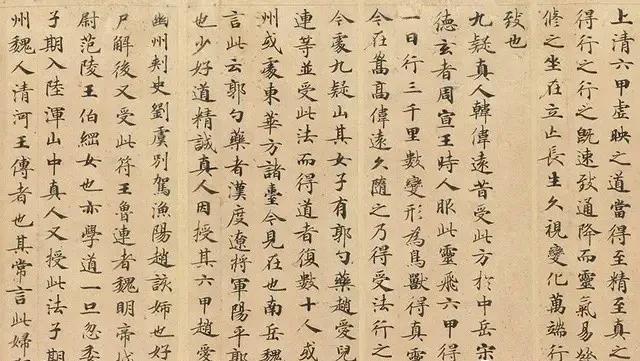 上清六甲虛映之道當得至精至真之
得行之行之既速致通降而靈氣易
修之坐在立亡長生久視變化萬端行
致也
九疑真人韓偉遠昔受此方於中岳宋
德玄者周宣王時人服此靈飛六甲得
一日行三千里數變形為鳥獸得真靈
今在嵩高偉遠久隨之乃得受法行之
今處九疑山其女子有郭勺藥趙愛兒
連等並受此法而得道者復數十人或
州或處東華方諸臺今見在也南岳魏
言此云郭勺藥者漢度遼將軍陽平郭
也少好道精誠真人因授其六甲趙愛
幽州刾史劉虞別駕漁陽趙該姉也好
尸解後又受此符王魯連者魏明帝城
尉范陵王伯綱女也亦學道一旦忽委
子期入陸渾山中真人又授此法子期
州魏人清河王傳者也其常言此婦